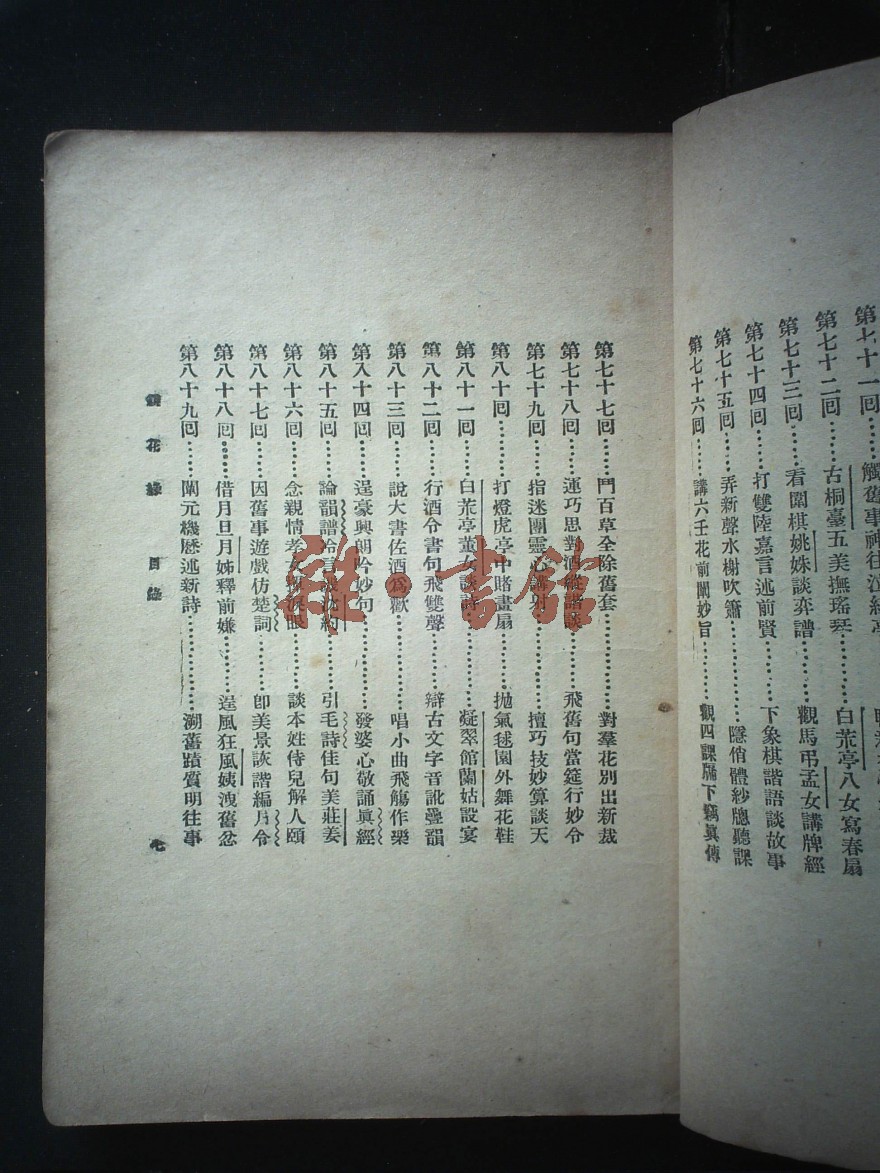 第七十二回……古桐臺五美撫瑤琴……白荒亭八女寫春扇
第七十三回……看圍棋姚姝談弈譜……觀馬弔孟女講牌經
第七十四回……打雙陸嘉言述前賢……下象棋諧語談故事
第七十五回……弄新聲水榭吹簫……隱俏體紗牕聽課
第七十六回……講六壬花前闡妙旨……觀四課牖下竊眞傳
第七十七回……鬥百草全除舊套……對羣花別出新裁
第七十八回……運巧思對酒縱諧談……飛舊句當筵行妙令
第七十九回……指迷團靈心講射……擅巧技妙算談天
第八十回……打燈虎亭中賭畫扇……拋氣毬園外舞花鞋
第八十一回……白荒亭董女談詩……凝翠館蘭姑設宴
第八十二回……行酒令書句飛雙聲……辯古文字音訛疊韻
第八十三回……說大書佐酒爲歡……唱小曲飛觴作樂
第八十四回……逞豪興朗吟妙句……發婆心敬誦眞經
第八十五回……論韻譜冷言譏沈約……引毛詩佳句美莊姜
第八十六回……念親情孝女揮淚眼……談本姓侍兒解人頤
第八十七回……因舊事遊戲仿楚詞……卽美景詼諧編月令
第八十八回……借月旦月姊釋前嫌……逞風狂風姨洩舊忿
第八十九回……闡元機歷述新詩……溯舊蹟質明往事
鏡花緣 目錄 七
雜·書館